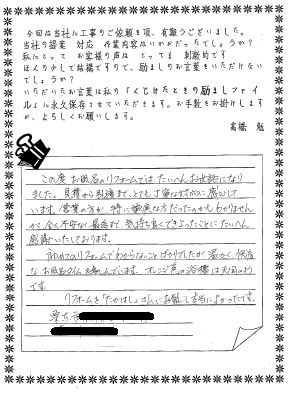 今回は当社に工事のご依頼を頂、有難うございました。
当社の提案 対応 作業内容はいかがだったでしょうか?
私にとって お客様の声は とっても 刺激的です
ほんの少しで結構ですので、励ましのお言葉をいただけない
でしょうか?
いただいたお言葉は私の「くじけたときの励ましファ
イル」に永久保存させていただきます。お手数をお掛けします
が、よろしくお願いします。
高橋 勉
この度 お風呂のリフォームではたいへんお世話になり
ました。見積から完成まで、とても丁寧な対応に感心して
います。営業の方が、特に誠実な方だったのかもわかりません
が、全く不安なく最後まで、気持ち良くできよったことにたいへん
感謝いたしております。
初めてのリフォームでわからないことばかりでしたが 暖かく 快適
なお風呂タイムを楽しんでいます。オレンジ色の浴槽は天国のよう
です。
リフォームを「たかはし」さんにお願いして本当によかったです。